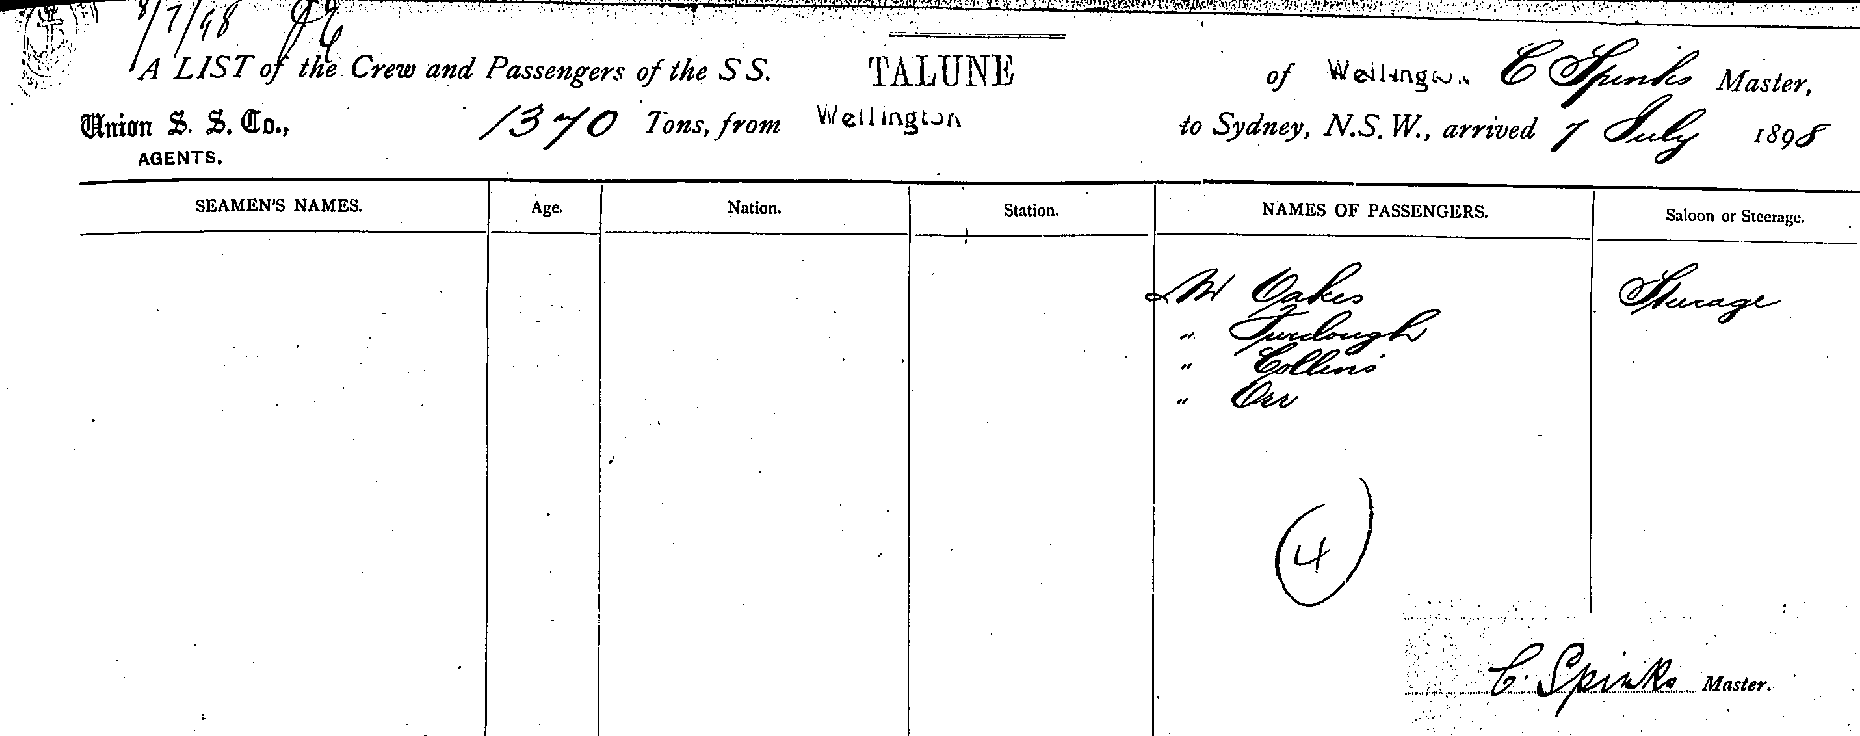 8/7/98
A LIST of the Crew and Passengers of the S S. TALUNE of Wellington C Spinks Master,
Union S. S. Co., 1370 Tons, from Wellington to Sydney, N.S.W., arrived 7 July 1898
AGENTS.
SEAMEN'S NAMES. Age. Nation. Station. NAMES OF PASSENGERS. Saloon or Steerage.
Mr Oakes Steerage
" Furdough
" Collins
" Orr
4
C. Spinks Master.